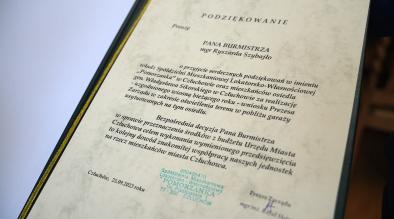 PODZIĘKOWANIE
Proszę
PANA BURMISTRZA
mgr Ryszarda Szybajło
o przyjęcie serdecznych podziękowań w imieniu
władz Spółdzielni Mieszkaniowej Lokatorsko-Własnościowej
"Pomorzanka" w Człuchowie oraz mieszkańców osiedla
gen. Władysława Sikorskiego w Człuchowie za realizację
uzgodnionego wiosną bieżącego roku - wniosku Prezesa
Zarządu w zakresie oświetlenia terenu w pobliżu garaży
usytuowanych na tym osiedlu.
Bezpośrednia decyzja Pana Burmistrza
w sprawie przeznaczenia środków z budżetu Urzędu Miasta
Człuchowa celem wykonania wymienionego przedsięwzięcia
to kolejny dowód znakomitej współpracy naszych jednostek
na rzecz mieszkańców miasta Człuchowa.
Człuchów, 25.09.2022 roku
Prezes Zarządu